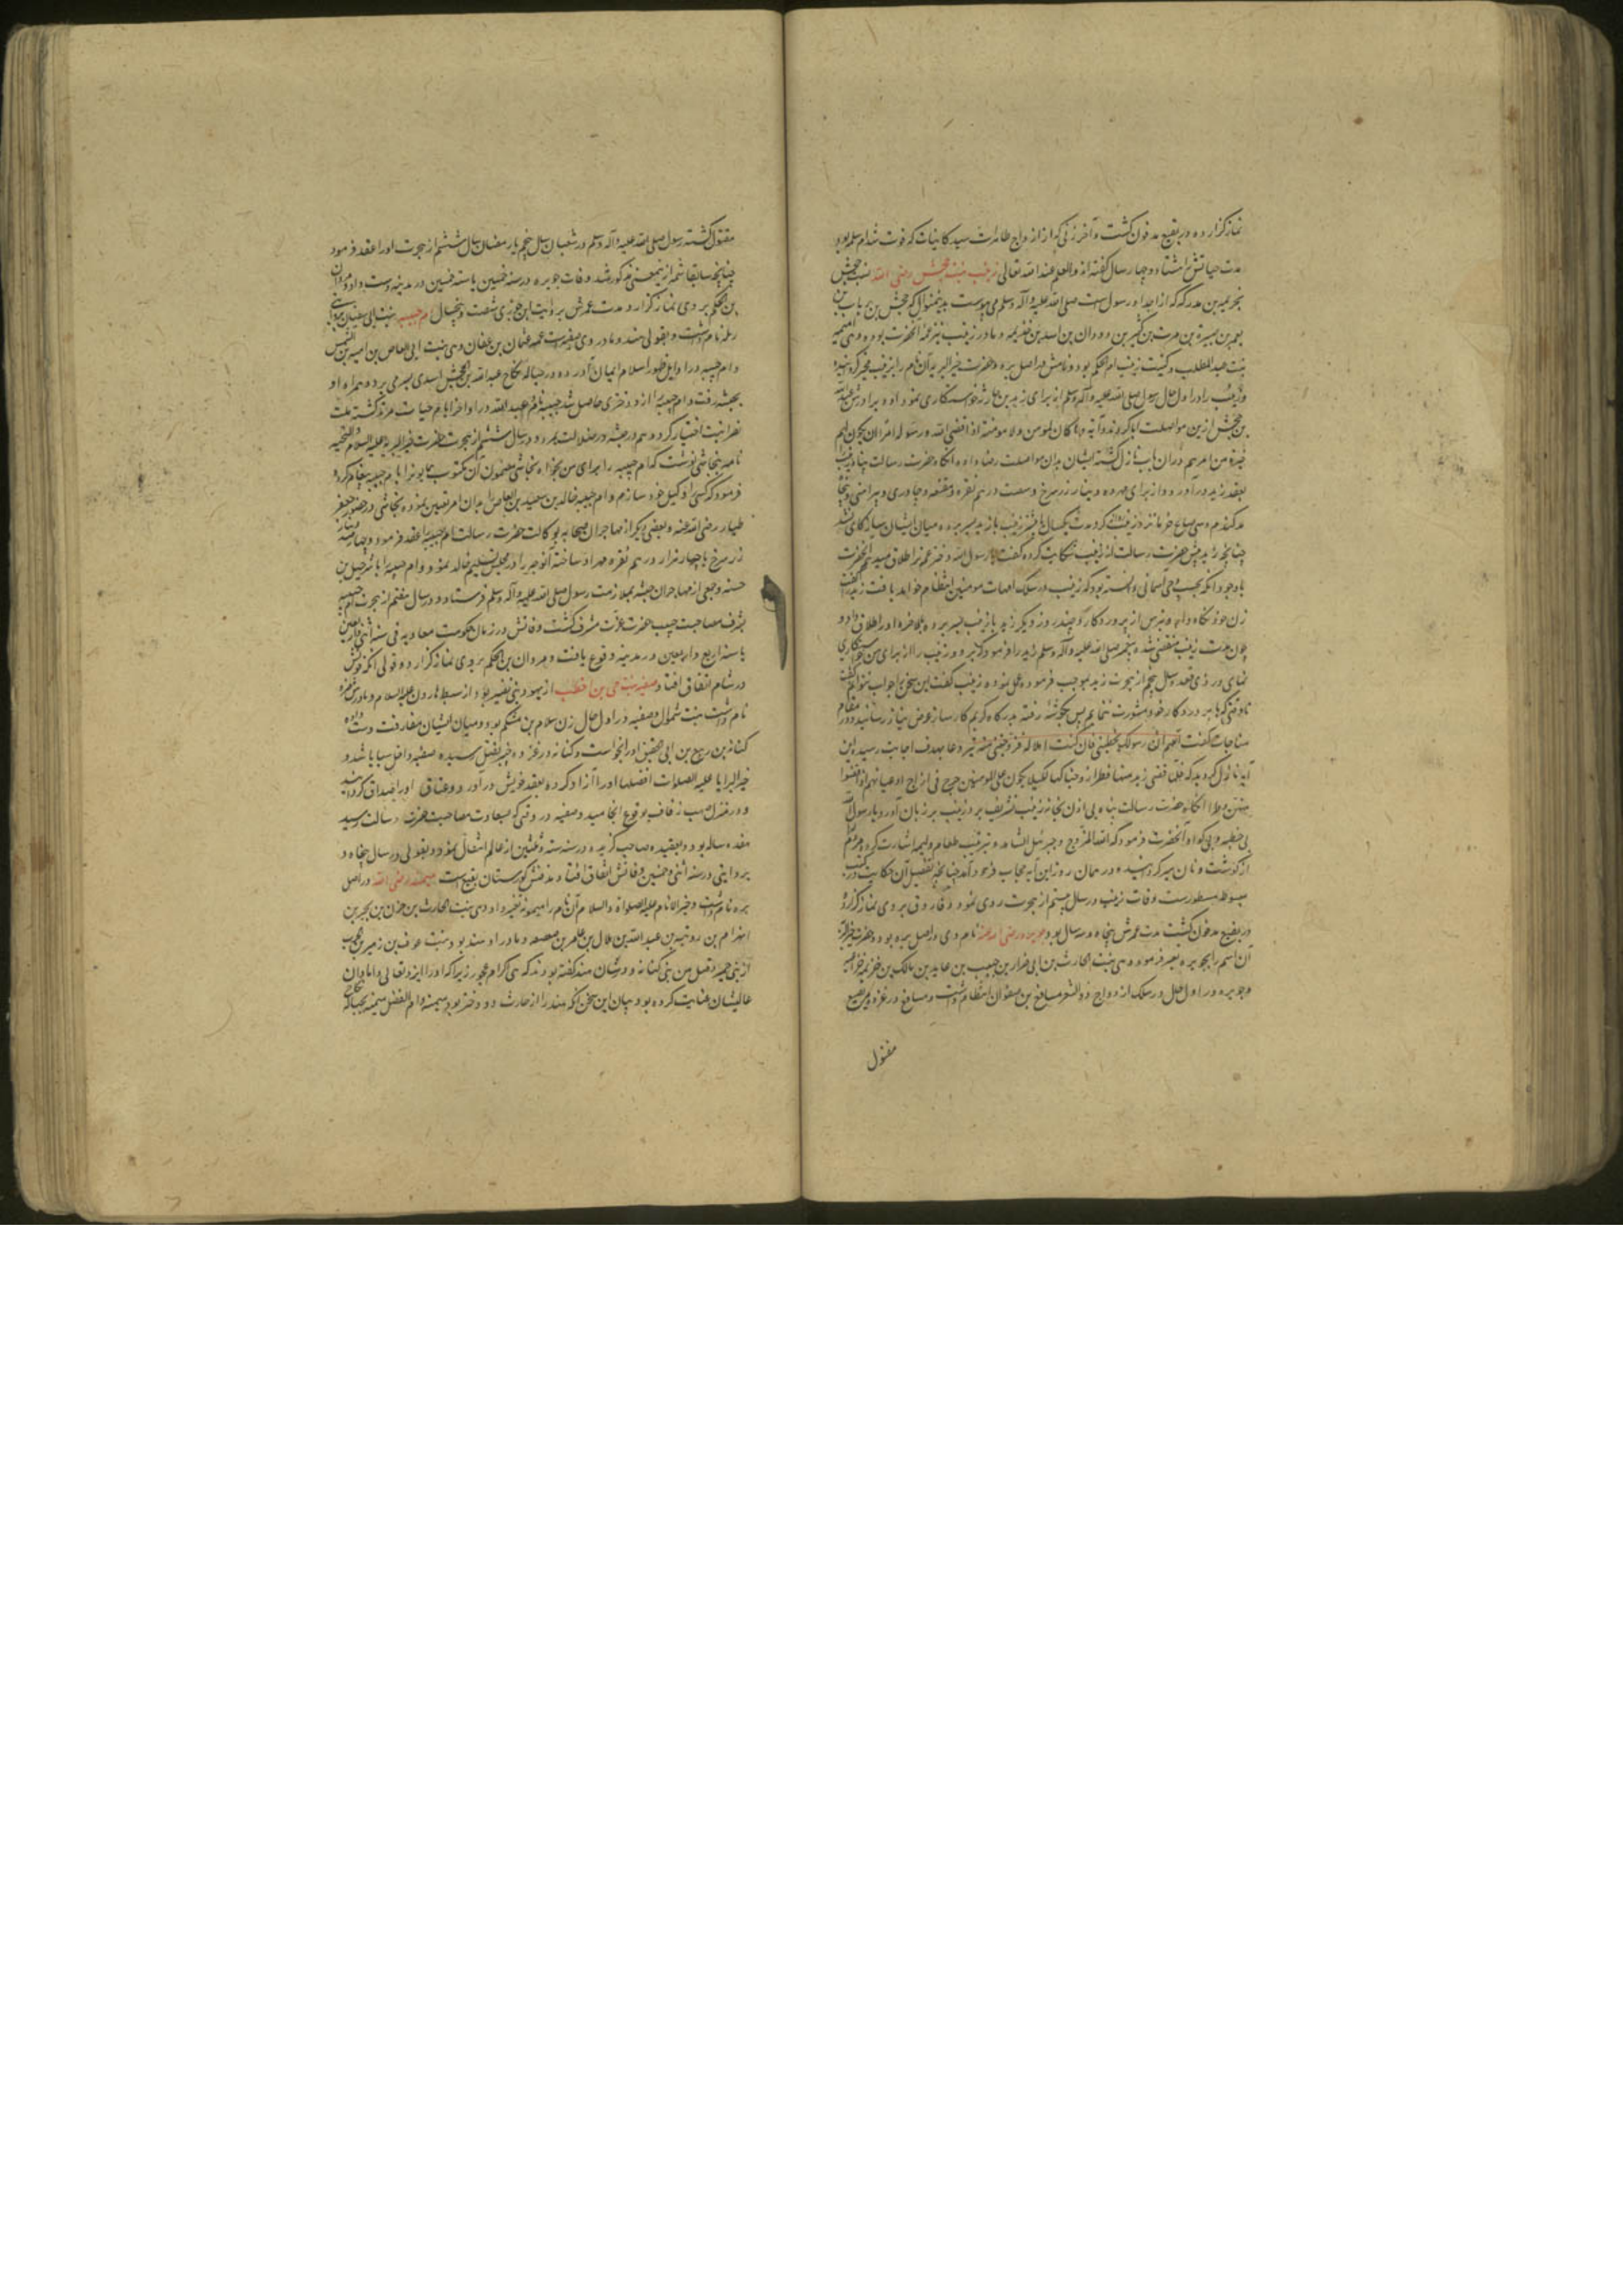 نماز گزارده در بقیع مدفون گشت و آخر زنی که از ازواج طاهرات سید کاینات که فوت شد ام سلمه بود
مدت حیاتش هشتاد و چهار سال گفته‌اند والعلم عند الله تعالی زینب بنت جحش رضی الله نسب جحش
بخزیمه بن مدرکه که از اجداد رسول است صلی الله علیه وآله وسلم می پیوست بدینمنوال که جحش بن رباب بن
یعمر بن صبیرة بن مرة بن کثیر بن دودان بن اسد بن خزیمه و مادر زینب نیز عمه آنحضرت بوده وهی امیمه
بنت عبد المطلب و کنیت زینب ام الحکم بود و نامش در اصل بره و حضرت خیر البریه آن نام را بزینب مغیر گردانیده
و زینب را در اول حال رسول صلی الله علیه وآله وسلم از برای زید بن حارثه خواستکاری نمود او و برادرش عبد الله
بن جحش ازین مواصلت ابا کردند و آیه وما کان لمومن ولا مومنة اذا قضی الله ورسوله امرا ان یکون لهم
الخیرة من امرهم در آن باب نازل گشته ایشان بدان مواصلت رضا داده انکاه حضرت رسالت پناه زینب
بعقد زید درآورد و از برای مهر ده دینار زر سرخ و شصت درهم نقره و مقنعه و چادری و پیراهنی و پنجاه
مد گندم و سی صاع خرما نزد زینب روان کرد مدت یکسال یا بیشتر زینب با زید بسر برده میان ایشان
چنانچه زید پیش حضرت رسالت از زینب شکایت کرده گفت یا رسول الله دختر عم ترا طلاق میدهم آنحضرت
با وجود آنکه بحسب وحی آسمانی دانسته بود که زینب در سلک امهات مومنین انتظام خواهد یافت زید را گفت
زن خود نگاه دار و بترس از پروردکار و چند روز دیگر زید با زینب بسر برده بالاخره او را طلاق داد و
چون عدت زینب منقضی شد پیغمبر صلی الله علیه وآله وسلم زید را فرمود که برو و زینب را از برای من خواستکاری
نمای در ذی قعده سال پنجم از هجرت زید بموجب فرموده عمل نموده زینب گفت این سخن را جواب نتوانم گفت
تا وقتی که با پروردکار خود مشورت ننمایم پس بگوشه رفته بدرگاه کریم کارساز عرض نیاز رسانید و در مقام
مناجات گفت اللهم ان رسولک یخطبنی فان کنت اهلا له فزوجنی منه تیر دعا بهدف اجابت رسید این
آیه نازل گردید که فلما قضی زید منها وطرا زوجناکها لکیلا یکون علی المومنین حرج فی ازواج ادعیائهم اذا قضوا
منهن وطرا انکاه حضرت رسالت پناه بی اذن بخانه زینب تشریف برد زینب بر زبان آورد یا رسول الله
بی خطبه و بی گواه آنحضرت فرمود که الله المزوج و جبرئیل الشاهد و بترتیب طعام ولیمه اشارت کرده مردم
از گوشت و نان سیر گردانیده و در همان روز این آیه حجاب فرود آمد چنانچه تفصیل آن حکایت در کتب
مبسوطه مسطورست وفات زینب در سال بیستم از هجرت روی نمود و فاروق بر وی نماز گزارده
در بقیع مدفون گشت مدت عمرش پنجاه و سه سال بود جویریه رضی الله عنها نام وی در اصل بره بود و حضرت
آن اسم را بجویریه تغییر فرمود وهی بنت الحارث بن ابی ضرار بن حبیب بن عاید بن مالک بن خزیمه خزاعیه
و جویریه در اول حال در سلک ازدواج ذو الشعر مسافع بن صفوان انتظام داشت و مسافع در غزوه مریسیع
مقتول
مقتول گشته رسول صلی الله علیه وآله وسلم در شعبان سال پنجم یا رمضان سال ششم از هجرت او را عقد فرمود
چنانچه سابقا شمه ازینمعنی مذکور شد وفات جویریه در سنه خمسین یا سته خمسین در مدینه دست داد و مروان
بن الحکم بر وی نماز گزارد و مدت عمرش بروایت ابن جوزی شصت و پنجسال ام حبیبه بنت ابی سفیان بروایتی
رمله نام داشت و بقولی هند و مادر وی صفیه است عمه عثمان بن عفان وهی بنت ابی العاص بن امیه بن الشمس
و ام حبیبه در اوایل ظهور اسلام ایمان آورده در حباله نکاح عبد الله بن جحش اسدی بسر می برد و همراه او
بحبشه رفت و ام حبیبه را ازو دختری حاصل شد حبیبه نام عبد الله در اواخر ایام حیات مرتد گشته ملت
نصرانیت اختیار کرد و هم در حبشه در ضلالت بمرد و در سال ششم از هجرت حضرت خیر البریه علیه السلام والتحیه
نامه بنجاشی نوشت که ام حبیبه را برای من بخواه نجاشی مضمون آن مکتوب همایون را بام حبیبه پیغام کرد و
فرمود که کسی را وکیل خود سازم و ام حبیبه خالد بن سعید بن العاص را بدان امر تعیین نموده نجاشی در حضور جعفر
طیار رضی الله عنه و بعضی دیگر از مهاجران صحابه بوکالت حضرت رسالت ام حبیبه را عقد فرمود و چهارصد دینار
زر سرخ یا چهار هزار درهم نقره مهر او ساخته آنوجه را در مجلس تسلیم خالد نمود و ام حبیبه را با شرحبیل بن
حسنه و جمعی از مهاجران حبشه بملازمت رسول صلی الله علیه وآله وسلم فرستاد و در سال هفتم از هجرت ام حبیبه
بشرف مصاحبت حبیب حضرت عزت مشرف گشت وفاتش در زمان حکومت معاویه فی سنه اثنی واربعین
یا سنه اربع واربعین در مدینه وقوع یافت و مروان بن الحکم بر وی نماز گزارد و قولی آنکه فوتش
در شام اتفاق افتاد صفیه بنت حی بن اخطب از یهود بنی نضیر بود از سبط هارون علیه السلام و مادرش ضره
نام داشت بنت شموال و صفیه در اول حال زن سلام بن مشکم بود و میان ایشان مفارقت دست داده
کنانه بن ربیع بن ابی حقیق او را بخواست و کنانه در غزوه خیبر بقتل رسیده صفیه داخل سبایا شد و
خیر البرایا علیه الصلوات افضلها او را آزاد کرده بعقد خویش درآورد و عتاق او را صداق گردانید
و در منزل صهبا زفاف بوقوع انجامید و صفیه در وقتی که بسعادت مصاحبت حضرت رسالت رسید
هفده ساله بود و بعقیده صاحب گزیده در سنه سته وثلثین از عالم انتقال نمود و بقولی در سال پنجاه و
بروایتی در سنه اثنی وخمسین وفاتش اتفاق افتاد و مدفنش گورستان بقیع است میمونه رضی الله در اصل
بره نام داشت و خیر الانام علیه الصلواة والسلام آن نام را میمونه تغییر داد وهی بنت الحارث بن حزن بن بجیر بن
الهرام بن رویبه بن عبد الله بن هلال بن عامر بن صعصعه و مادر او هند بود بنت عوف بن زهیر بن الحرب
از بنی حمیر وقیل من بنی کنانه و در شان هند گفته بودند که هی اکرام عجوز زیرا که او را ایزد تعالی دامادان
عالیشان عنایت کرده بود و بیان این سخن آنکه هند را از حارث دو دختر بود میمونه و ام الفضل میمونه بحباله نکاح